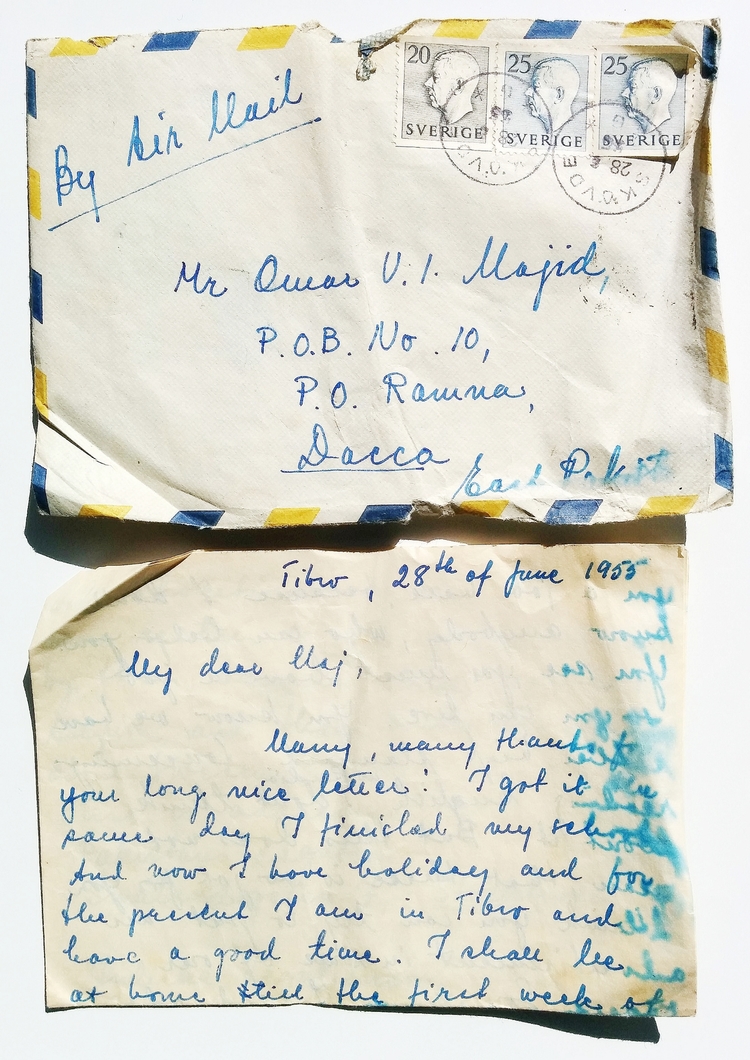 By Air Mail
20 25 25
SVERIGE SVERIGE SVERIGE
SKÖVDE
28
Mr Omar V. I. Majid,
P.O.B. No. 10,
P.O. Ramna,
Dacca
East
Tibro, 28th of June 1955
My dear Maj,
Many, many
your long nice letter! I got it
same day I finished my
And now I have holiday and for
the present I am in Tibro and
have a good time. I shall be
at home still the first week of